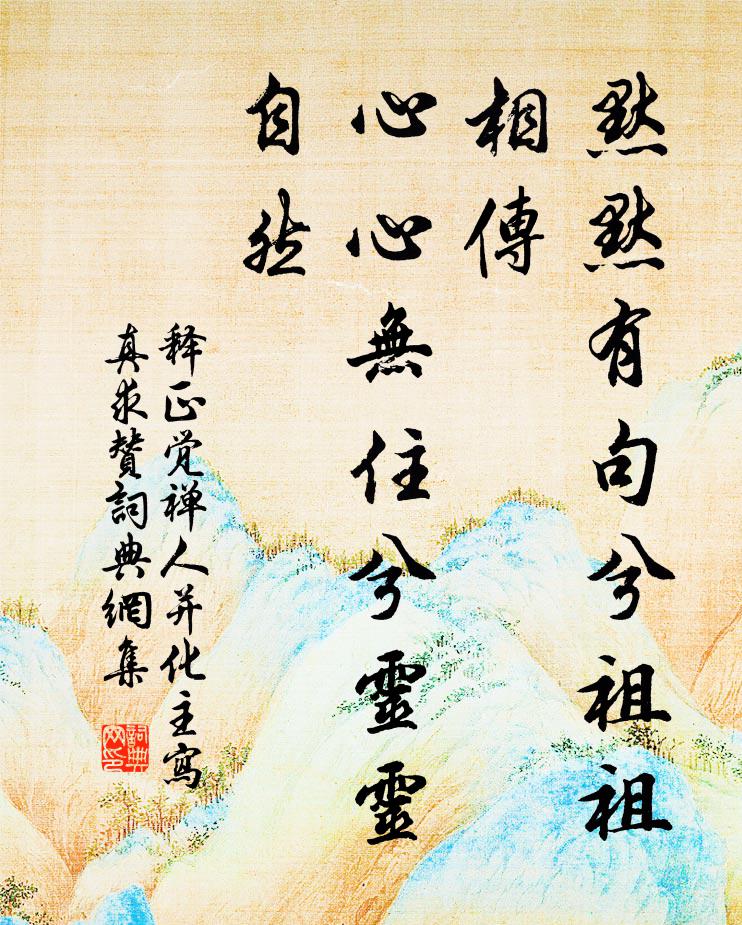 默默有句兮祖祖
相傳
心心無住兮靈靈
自然
释正觉禅人并化主寫
真求贊詞典網集
詞典
网印